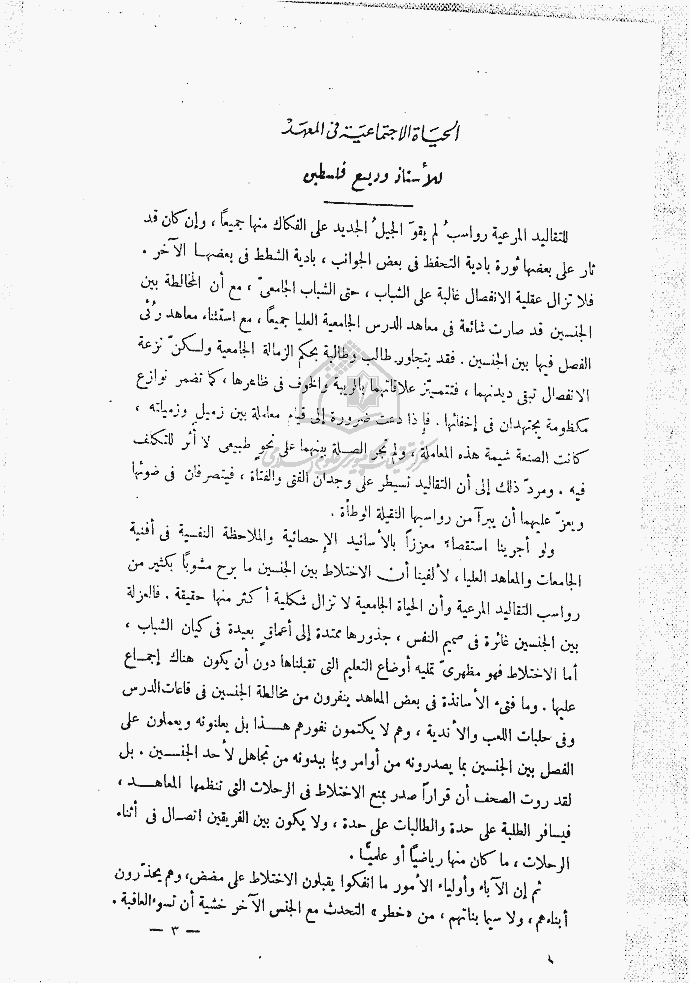 الحياة الاجتماعية في المعهد
للأستاذ وديع فلسطين
للتقاليد المرعية رواسبُ لم يقوَ الجيلُ الجديد على الفكاك منها جميعًا ، وإن كان قد
ثار على بعضها ثورة بادية التحفظ في بعض الجوانب ، بادية الشطط في بعضهـا الآخر .
فلا تزال عقلية الانفصال غالبة على الشباب ، حتى الشباب الجامعيّ ، مع أن المخالطة بين
الجنسين قد صارت شائعة في معاهد الدرس الجامعية العليا جميعًا ، مع استثناء معاهد رُئي
الفصل فيها بين الجنسين . فقد يتجاور طالب وطالبة بحكم الزمالة الجامعية ولكنّ نزعة
الانفصال تبقى ديدنهما ، فتتميّز علاقاتهما بالريبة والخوف في ظاهرها ، كما تضمر نوازع
مكظومة يجتهدان في إخفائها . فإذا دعت ضرورة إلى قيام معاملة بين زميل وزميلته ،
كانت الصنعة شيمة هذه المعاملة ، ولم تجر الصـلة بينهما على نحو طبيعى لا أثر للتكلف
فيه . ومردّ ذلك إلى أن التقاليد تسيطر على وجدان الفتى والفتاة ، فيتصرفان في ضوئها
ويعزّ عليهما أن يبرآ من رواسبها الثقيلة الوطأة .
ولو أجرينا استقصاءً معززاً بالأسانيد الإحصائية والملاحظة النفسية في أفنية
الجامعات والمعاهد العليا ، لألفينا أن الاختلاط بين الجنسين ما برح مشوبًا بكثير من
رواسب التقاليد المرعية وأن الحياة الجامعية لا تزال شكلية أكثر منها حقيقة . فالعزلة
بين الجنسين غائرة في صميم النفس ، جذورها ممتدة إلى أعماقٍ بعيدة في كيان الشباب ،
أما الاختلاط فهو مظهرىّ تمليه أوضاع التعليم التى تقبلناها دون أن يكون هناك إجمـاع
عليها . وما فتىء الأساتذة في بعض المعاهد ينفرون من مخالطة الجنسين في قاعات الدرس
وفى حلبات اللعب والأندية ، وهم لا يكتمون نفورهم هـــذا بل يعلنونه ويعملون على
الفصل بين الجنسين بما يصدرونه من أوامر وبما يبدونه من تجاهل لأحد الجنســين . بل
لقد روت الصحف أن قراراً صدر بمنع الاختلاط في الرحلات التى تنظمها المعاهــد ،
فيسافر الطلبة على حدة والطالبات على حدة ، ولا يكون بين الفريقين اتصـال في أثناء
الرحلات ، ما كان منها رياضيًا أو علميًّا .
ثم إن الآباء وأولياء الأمور ما انفكوا يقبلون الاختلاط على مضض، وهم يحذّرون
أبناءهم ، ولا سيما بناتهم ، من «خطر» التحدث مع الجنس الآخر خشية أن تسوء العاقبة .
— ٣ —